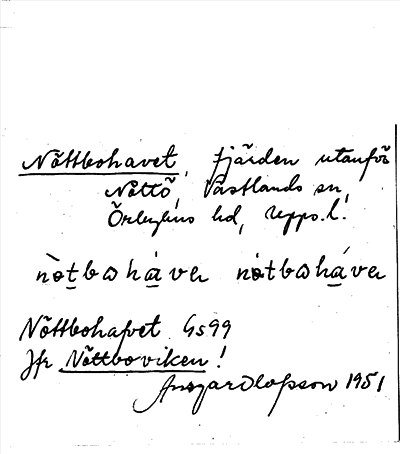 Nöttbohavet, fjärden utanför
Nöttö, Västlands sn,
Örbyhus hd, Upps. l.
nòtbωhàver nòtbωháver
Nöttbohafvet Gs99
Jfr Nöttboviken!
Ansgar Olofsson 1951